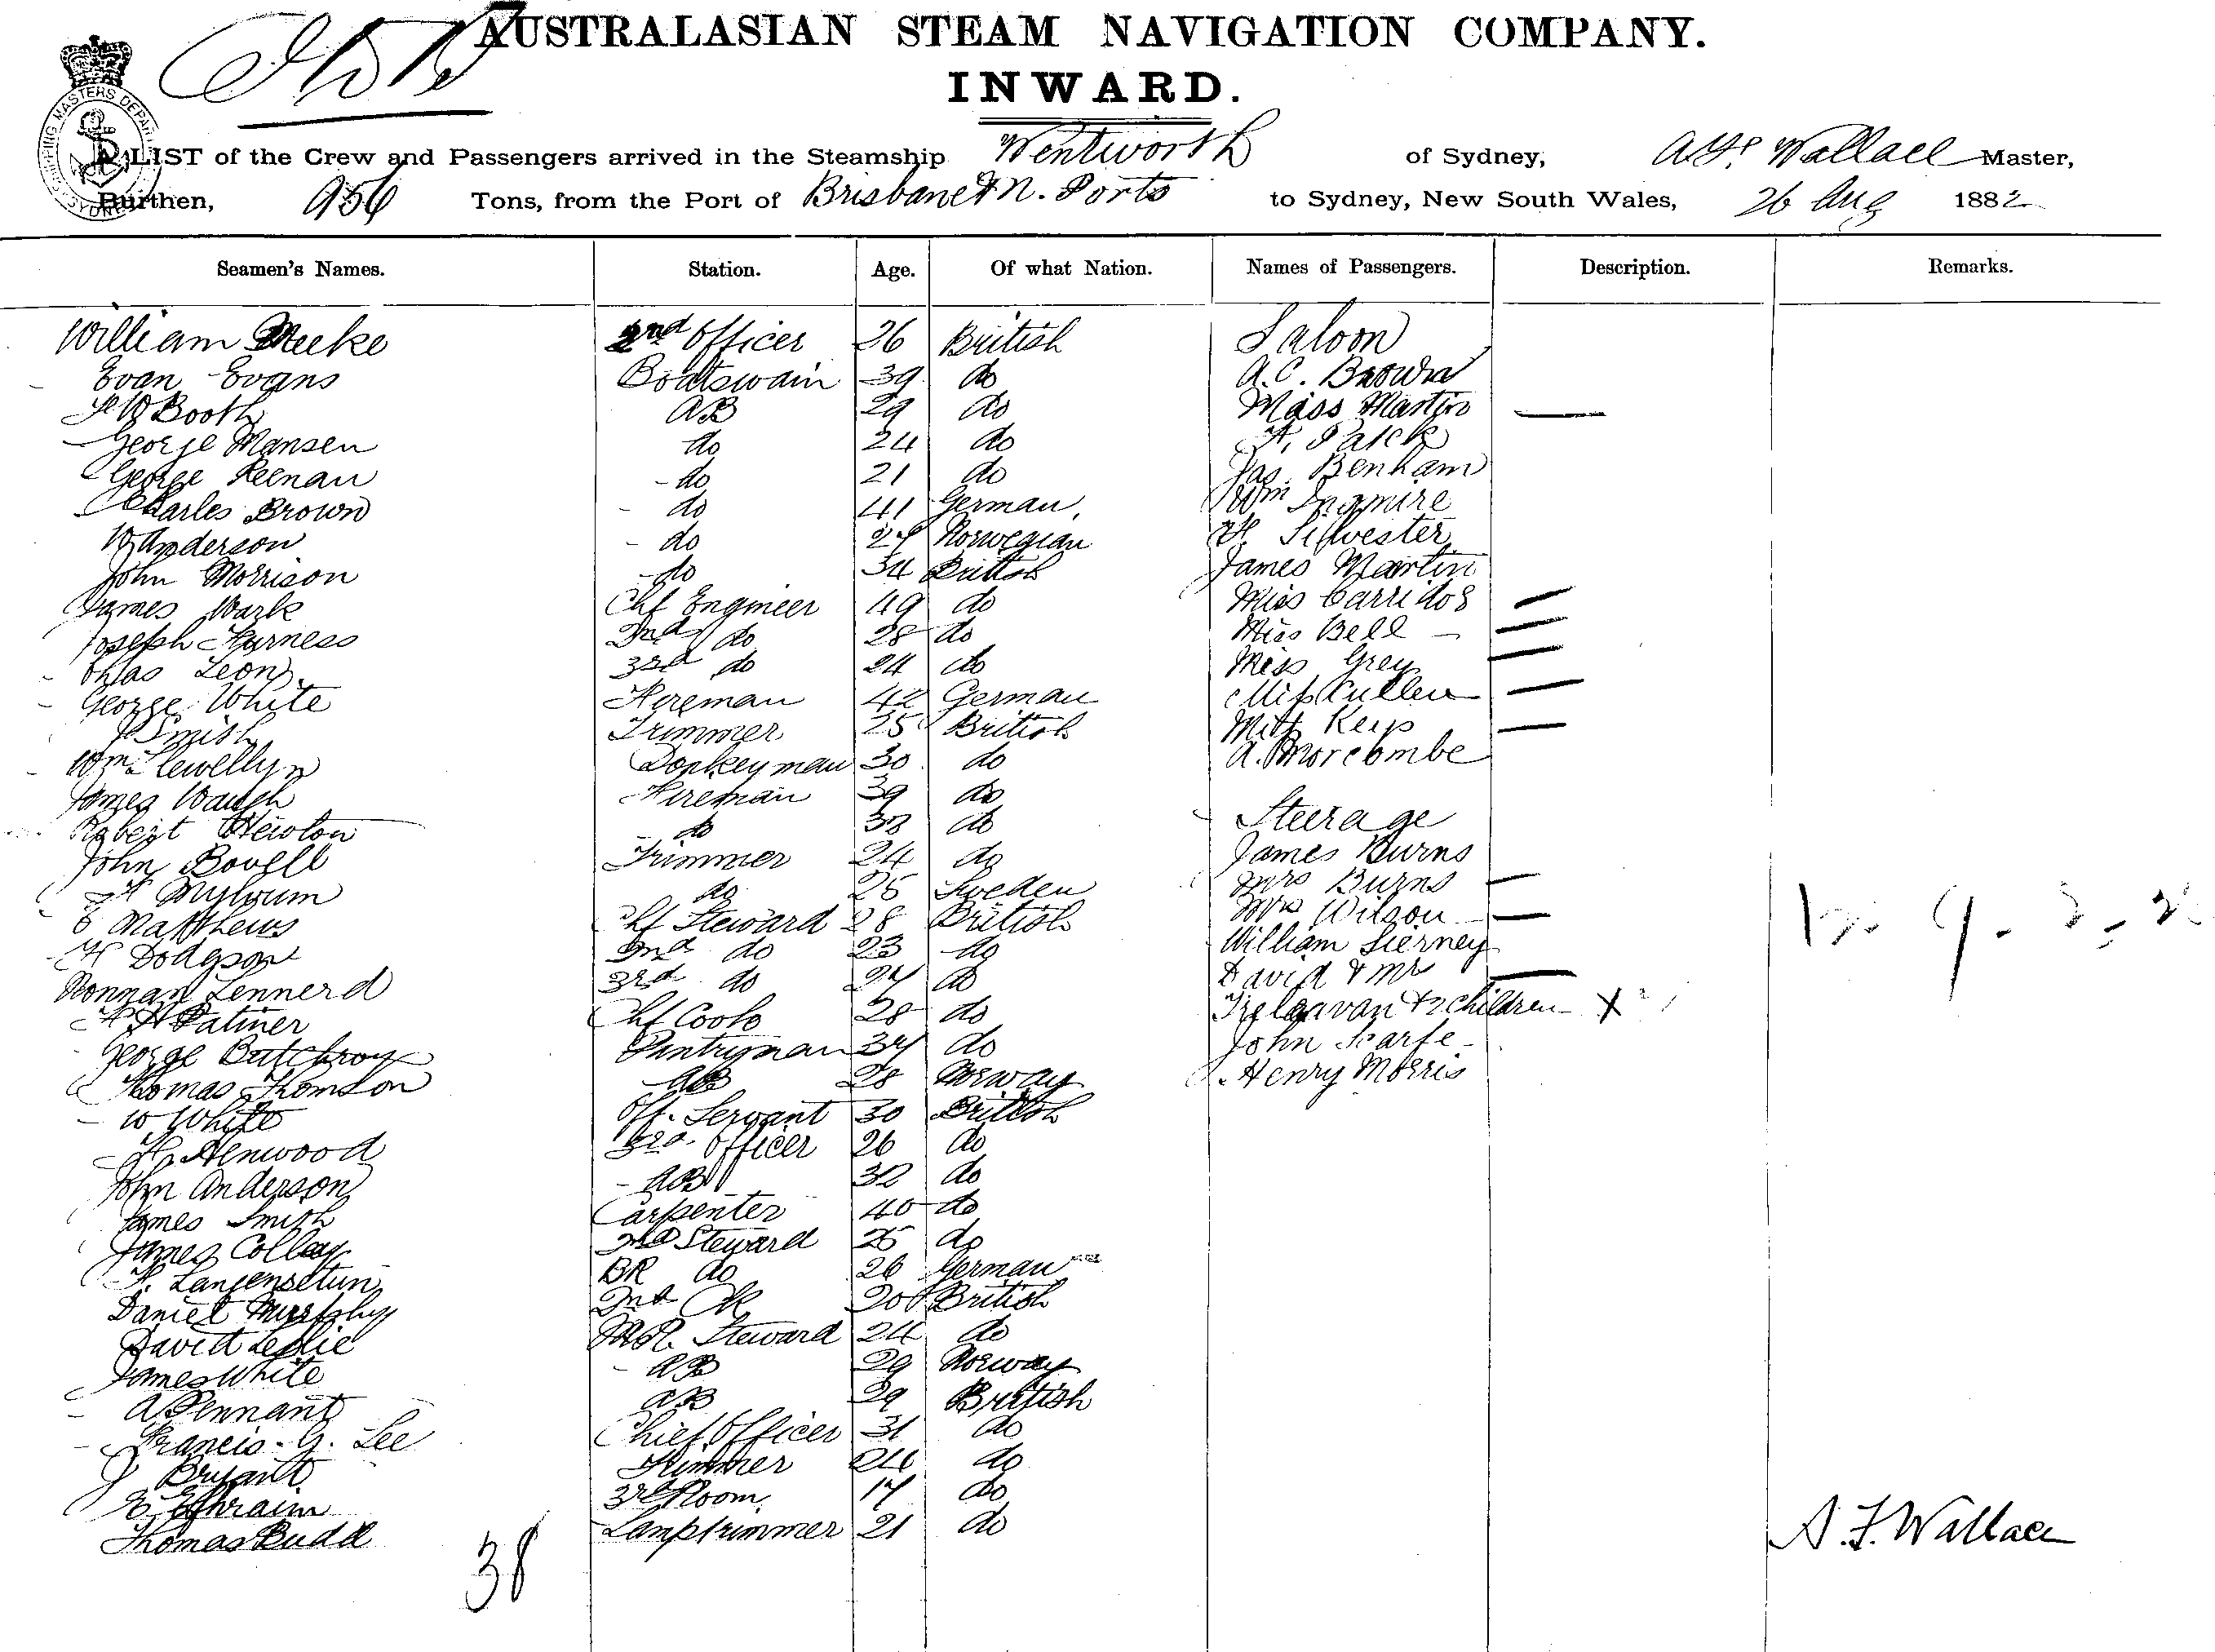 AUSTRALASIAN STEAM NAVIGATION COMPANY.
INWARD.
SHIPPING MASTERS DEPAR
SYDNEY
A LIST of the Crew and Passengers arrived in the Steamship Wentworth of Sydney, Wallace Master,
Burthen, 956 Tons, from the Port of Brisbane & N. Ports to Sydney, New South Wales, 26 Aug 1882
Seamen's Names. Station. Age. Of what Nation. Names of Passengers. Description. Remarks.
William Meeke 2nd Officer 26 British Saloon
Evan Evans Boatswain 39 do A.C. Brown
Booth AB 29 do Miss Martin —
George Hansen do 24 do
George Keenan do 21 do Jas. Benham
Charles Brown do 41 German, Wm
W Anderson do Norwegian H. Silvester
John Morrison do 34 British James Martin
James Wark Chf Engineer 49 do Miss —
Joseph Harness 2nd do 28 do Miss Bell —
Chas Leon 3rd do 24 do Miss Grey —
George White Fireman 42 German Miss Cullen —
J Smith Trimmer 25 British Miss —
Wm Llewellyn Donkeyman 30 do A. Morcombe
James Waugh Fireman 39 do
Robert Newton do 33 do Steerage
John Bovell Trimmer 24 do James Burns
do 25 Sweden Mrs Burns —
Matthews Chf Steward 28 British Mrs Wilson —
H Dodgson 2nd do 23 do William Tierney
Lennerd 3rd do do David & Mr —
Chf Cook 28 do & 2 children
George Pantryman do John Scarfe
Thomas Thomson AB 28 Norway Henry Morris
W White Off. Servant 30 British
H. Henwood 3rd Officer 26 do
John Anderson AB 32 do
James Smith Carpenter 40 do
James Colley 2nd Steward 25 do
BR do 26 German
Daniel Murphy 2nd 20 British
David Leslie Steward 24 do
James White AB 29 Norway
A Pennant AB 29 British
Francis G. Lee Chief Officer 31 do
J Bryant Trimmer 24 do
E Ephraim 3rd Room 17 do
Thomas Budd Lamptrimmer 21 do
38
A. F. Wallace